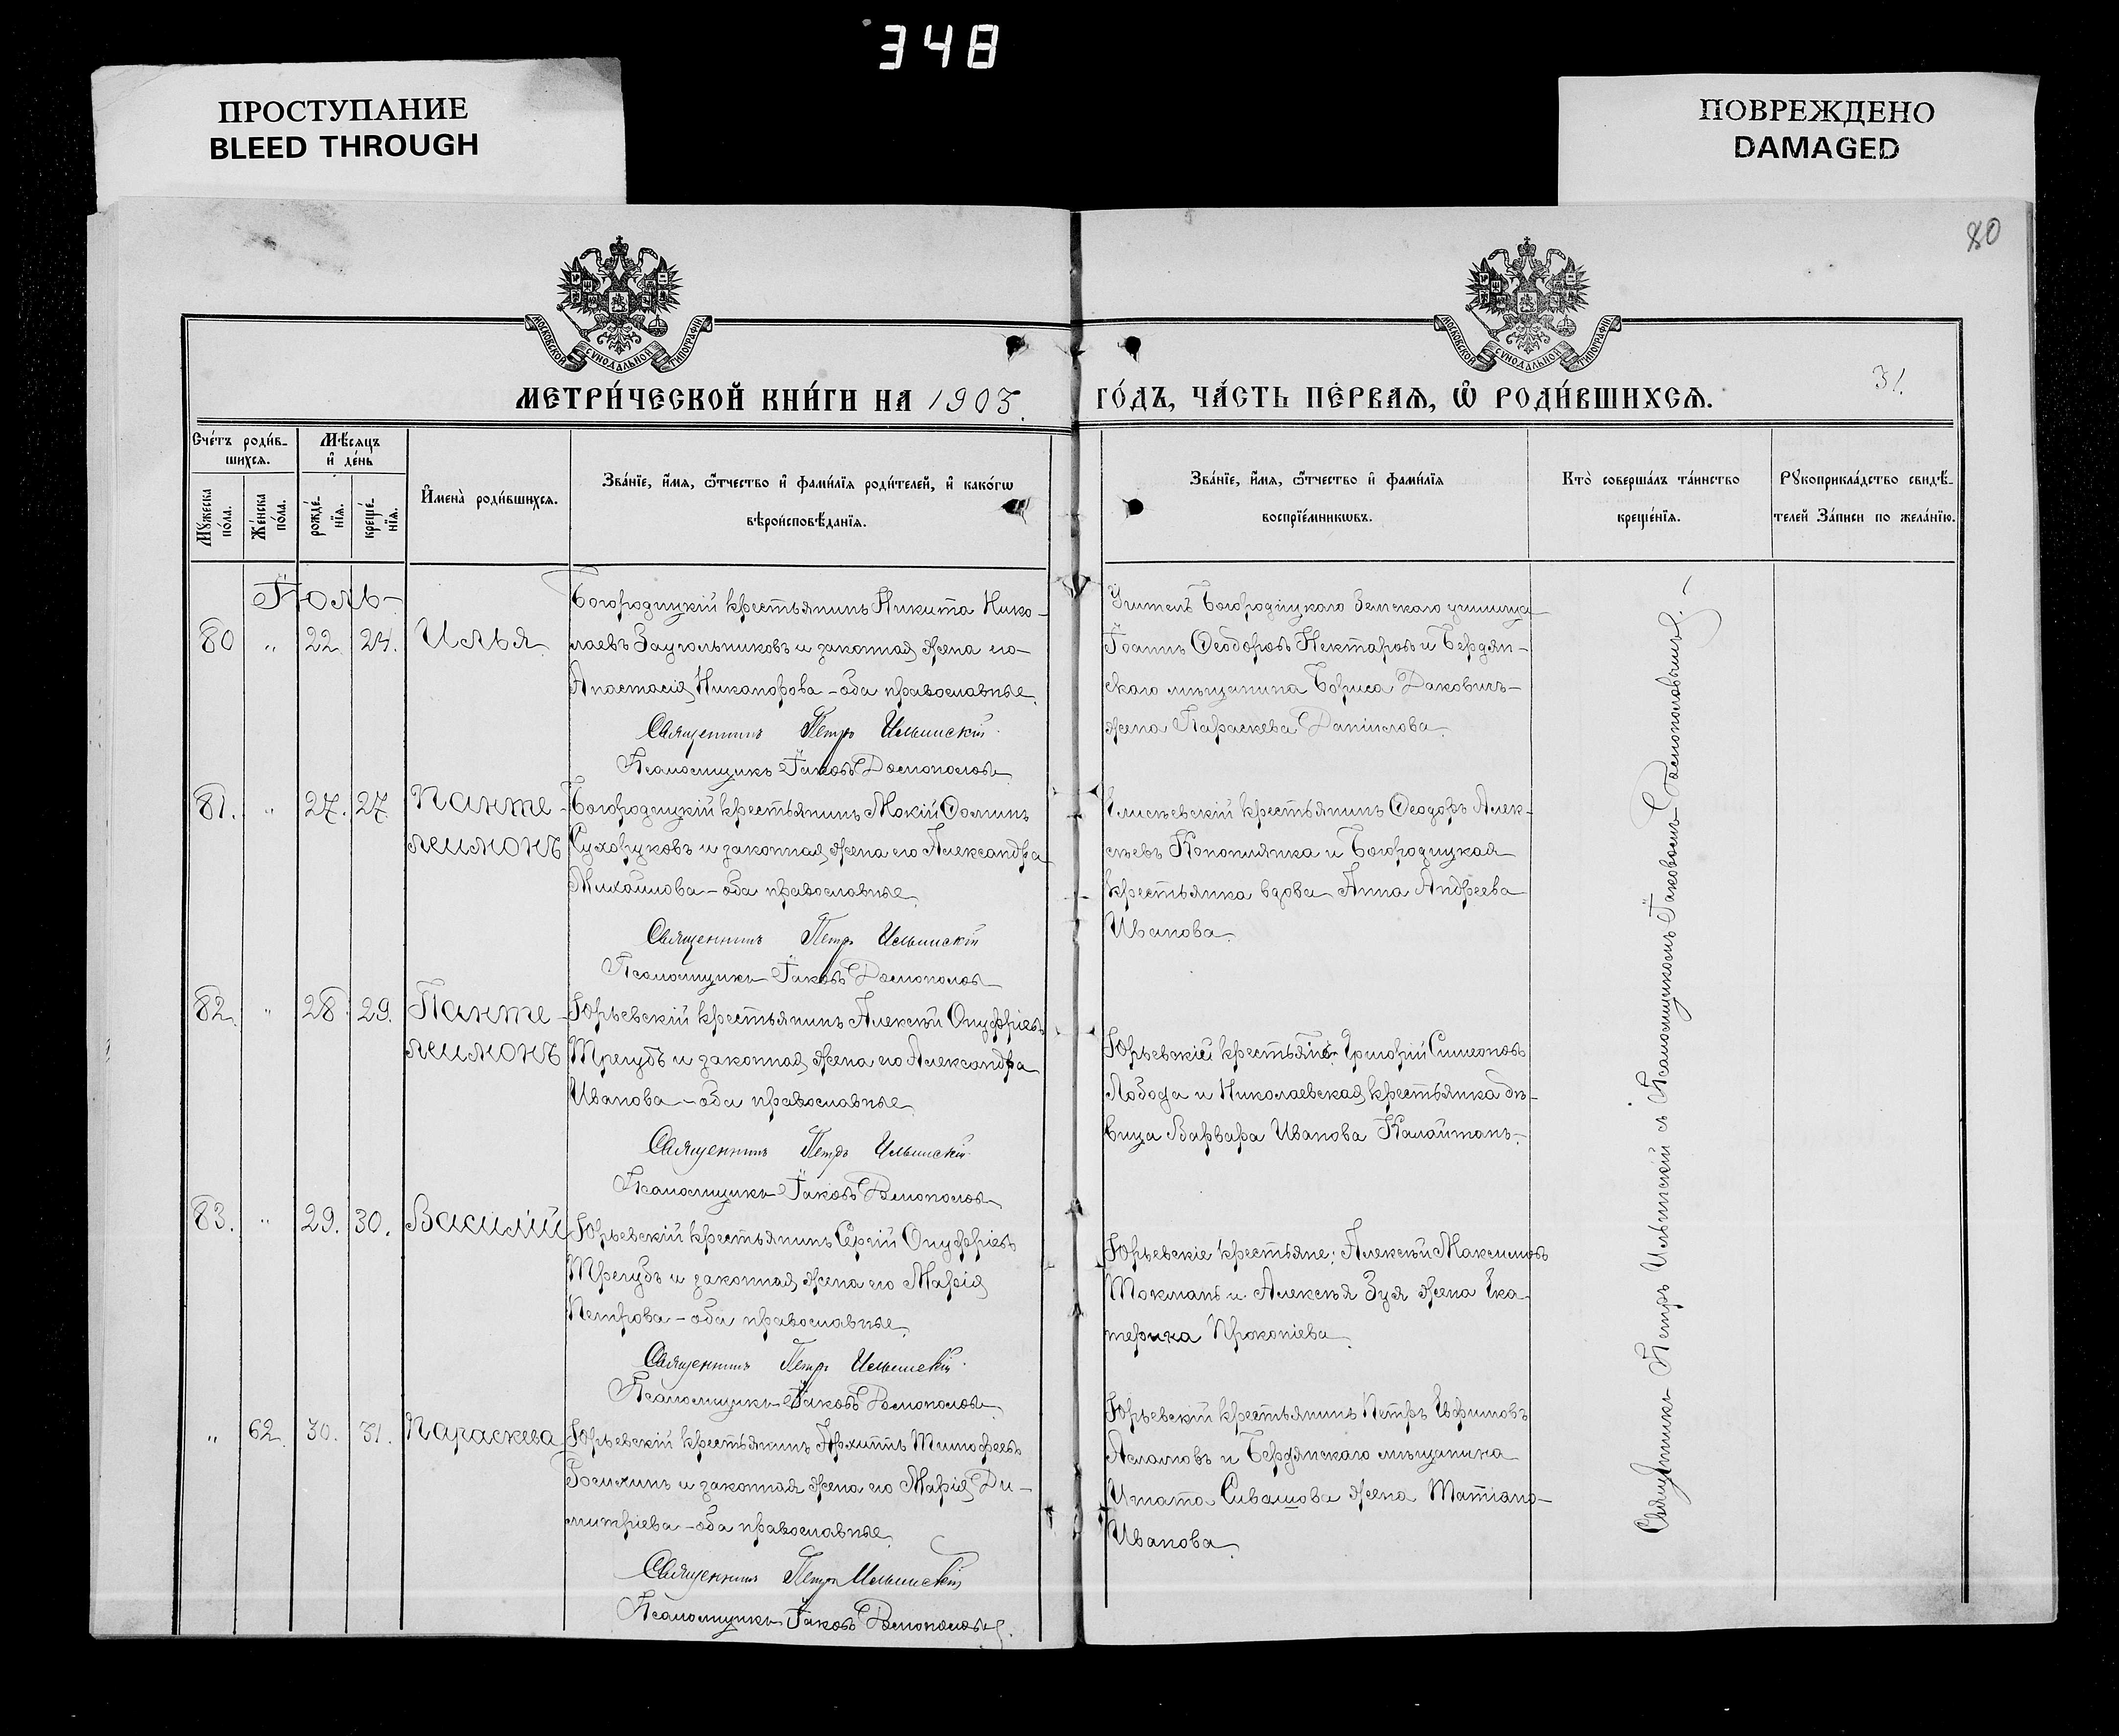 348
ПРОСТУПАНИЕ
BLEED THROUGH
ПОВРЕЖДЕНО
DAMAGED
80
МОСКОВСКОЙ СѴНОДАЛЬНОЙ ТИПОГРАФІИ
МОСКОВСКОЙ СѴНОДАЛЬНОЙ ТИПОГРАФІИ
МЕТРИ́ЧЕСКОЙ КНИ́ГИ НА 1903.
ГО́ДЪ, ЧА́СТЬ ПЕ́РВАѦ, Ѽ РОДИ́ВШИХСѦ.
31.
Сче́тъ роди́в-
шихсѧ.
Мѣ́сяцъ
и҆ де́нь
Мꙋ́жеска
по́ла.
Же́нска
по́ла.
рожде́-
нїѧ.
креще́-
нїѧ.
И҆мена̀ роди́вшихсѧ.
Зва́нїе, и҆́мѧ, ѻ҆́тчество и҆ фами́лїѧ роди́телей, и҆ како́гѡ
вѣроисповѣ́данїѧ.
Зва́нїе, и҆́мѧ, ѻ҆́тчество и҆ фами́лїѧ
воспрїе́мникѡвъ.
Кто̀ соверша́лъ та́инство
креще́нїѧ.
Рꙋкоприкла́дство свидѣ́-
телей за́писи по жела́нїю.
Іюль
80 " 22. 24. Илья
Богородицкій крестьянинъ Никита Нико-
лаевъ Заугольниковъ и законная жена его
Анастасія Никанорова - оба православные.
Священникъ Петръ Ильинскій
Псаломщикъ Іаковъ
Учитель Богородицкаго Земскаго училища
Іоаннъ Ѳеодоровъ Нектаровъ и Бердян-
скаго мѣщанина Бориса Даковичъ
жена Параскева Даніилова.
81. " 27. 27. Панте-
леимонъ
Богородицкій крестьянинъ Мокій Ѳоминъ
Сухоруковъ и законная жена его Александра
Михаилова - оба православные.
Священникъ Петръ Ильинскій
Псаломщикъ Іаковъ
Елисѣевскій крестьянинъ Ѳеодоръ Алек-
сѣевъ Коноплянка и Богородицкая
крестьянка вдова Анна Андреева
Иванова.
82. " 28. 29. Панте-
леимонъ
Юрьевскій крестьянинъ Алексѣй Онуфріевъ
Трегубъ и законная жена его Александра
Иванова - оба православные.
Священникъ Петръ Ильинскій
Псаломщикъ Іаковъ
Юрьевскій Григорій Симеоновъ
Лобода и Николаевская крестьянка дѣ-
вица Варвара Иванова Калайтанъ.
83. " 29. 30. Василій
Юрьевскій крестьянинъ Сергій Онуфріевъ
Трегубъ и законная жена его Марія
Петрова - оба православные.
Священникъ Петръ Ильинскій
Псаломщикъ Іаковъ
Юрьевскіе крестьяне: Алексѣй Максимовъ
Токмань и Алексѣя Зуя жена Ека-
терина Прокопіева.
" 62. 30. 31. Параскева
Юрьевскій крестьянинъ Архиппъ Тимофеевъ
и законная жена его Марія Ди-
митріева - оба православные.
Священникъ Петръ Ильинскій
Псаломщикъ Іаковъ
Юрьевскій крестьянинъ Петръ Евфимовъ
и Бердянскаго мѣщанина
Игната Сивашова жена Татіана
Иванова.
Священникъ Петръ Ильинскій съ Псаломщикомъ Іаковомъ